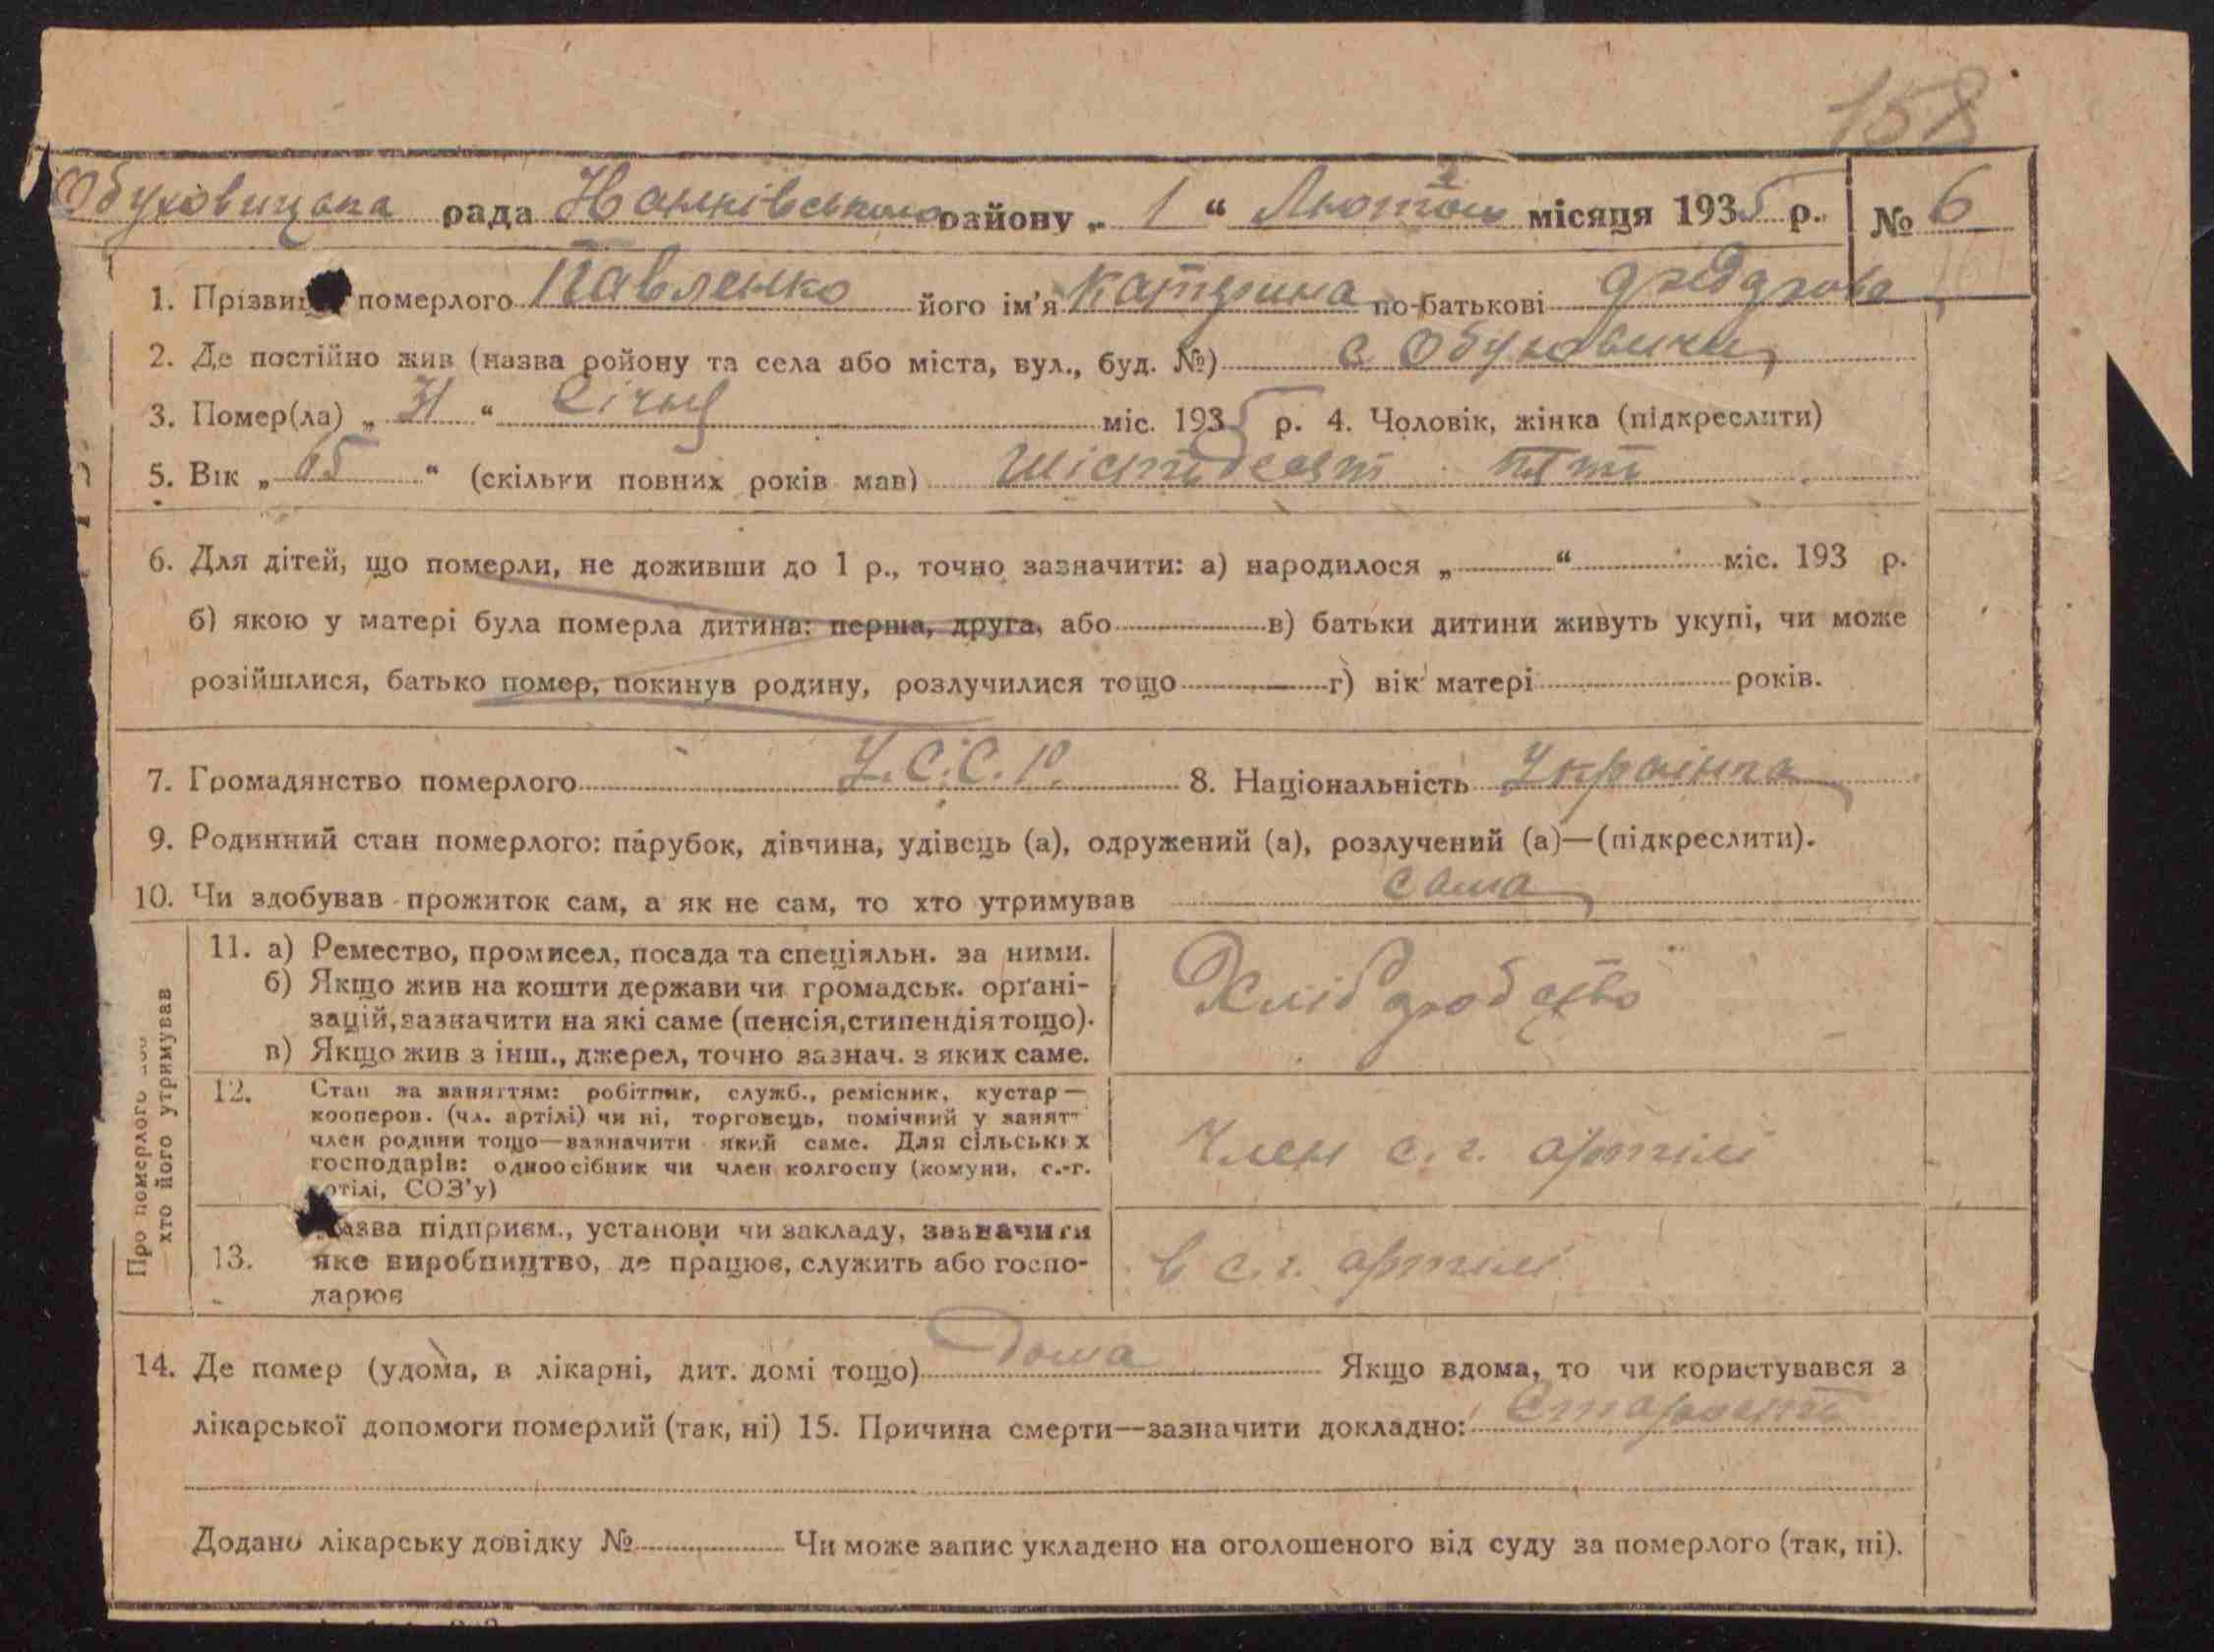 158
Обуховицька рада Іванківського району „ 1 “ Лютого місяця 1935 р. № 6
1. Прізвище померлого Павленко його ім'я Катерина по-батькові
2. Де постійно жив (назва ройону та села або міста, вул., буд. №) с Обуховичи
3. Помер(ла) „ “ Січня міс. 1935 р. 4. Чоловік, жінка (підкреслити)
5. Вік „ 65 “ (скільки повних років мав) Шістьдесят пять
6. Для дітей, що померли, не доживши до 1 р., точно зазначити: а) народилося „ “ міс. 193 р.
б) якою у матері була померла дитина: перша, друга, або в) батьки дитини живуть укупі, чи може
розійшлися, батько помер, покинув родину, розлучилися тощо г) вік матері років.
7. Громадянство померлого У.С.С.Р. 8. Національність Українка
9. Родинний стан померлого: парубок, дівчина, удівець (а), одружений (а), розлучений (а)—(підкреслити).
10. Чи здобував прожиток сам, а як не сам, то хто утримував сама
Про померлого
хто його утримував
11. а) Ремество, промисел, посада та спеціяльн. за ними.
б) Якщо жив на кошти держави чи громадськ. орґані-
зацій, зазначити на які саме (пенсія, стипендія тощо).
в) Якщо жив з інш., джерел, точно зазнач. з яких саме.
Хлібробство
12. Стан за заняттям: робітник, служб., ремісник, кустар—
кооперов. (чл. артілі) чи ні, торговець, помічний у занятт
член родини тощо—зазначити який саме. Для сільських
господарів: одноосібник чи член колгоспу (комуни, с.-г.
артілі, СОЗ'у)
Член с. г. артілі
13. Назва підприєм., установи чи закладу, зазначити
яке виробництво, де працює, служить або госпо-
дарює
в с. г. артілі
14. Де помер (удома, в лікарні, дит. домі тощо) Дома Якщо вдома, то чи користувався з
лікарської допомоги померлий (так, ні) 15. Причина смерти—зазначити докладно: Старость
Додано лікарську довідку № Чи може запис укладено на оголошеного від суду за померлого (так, ні).